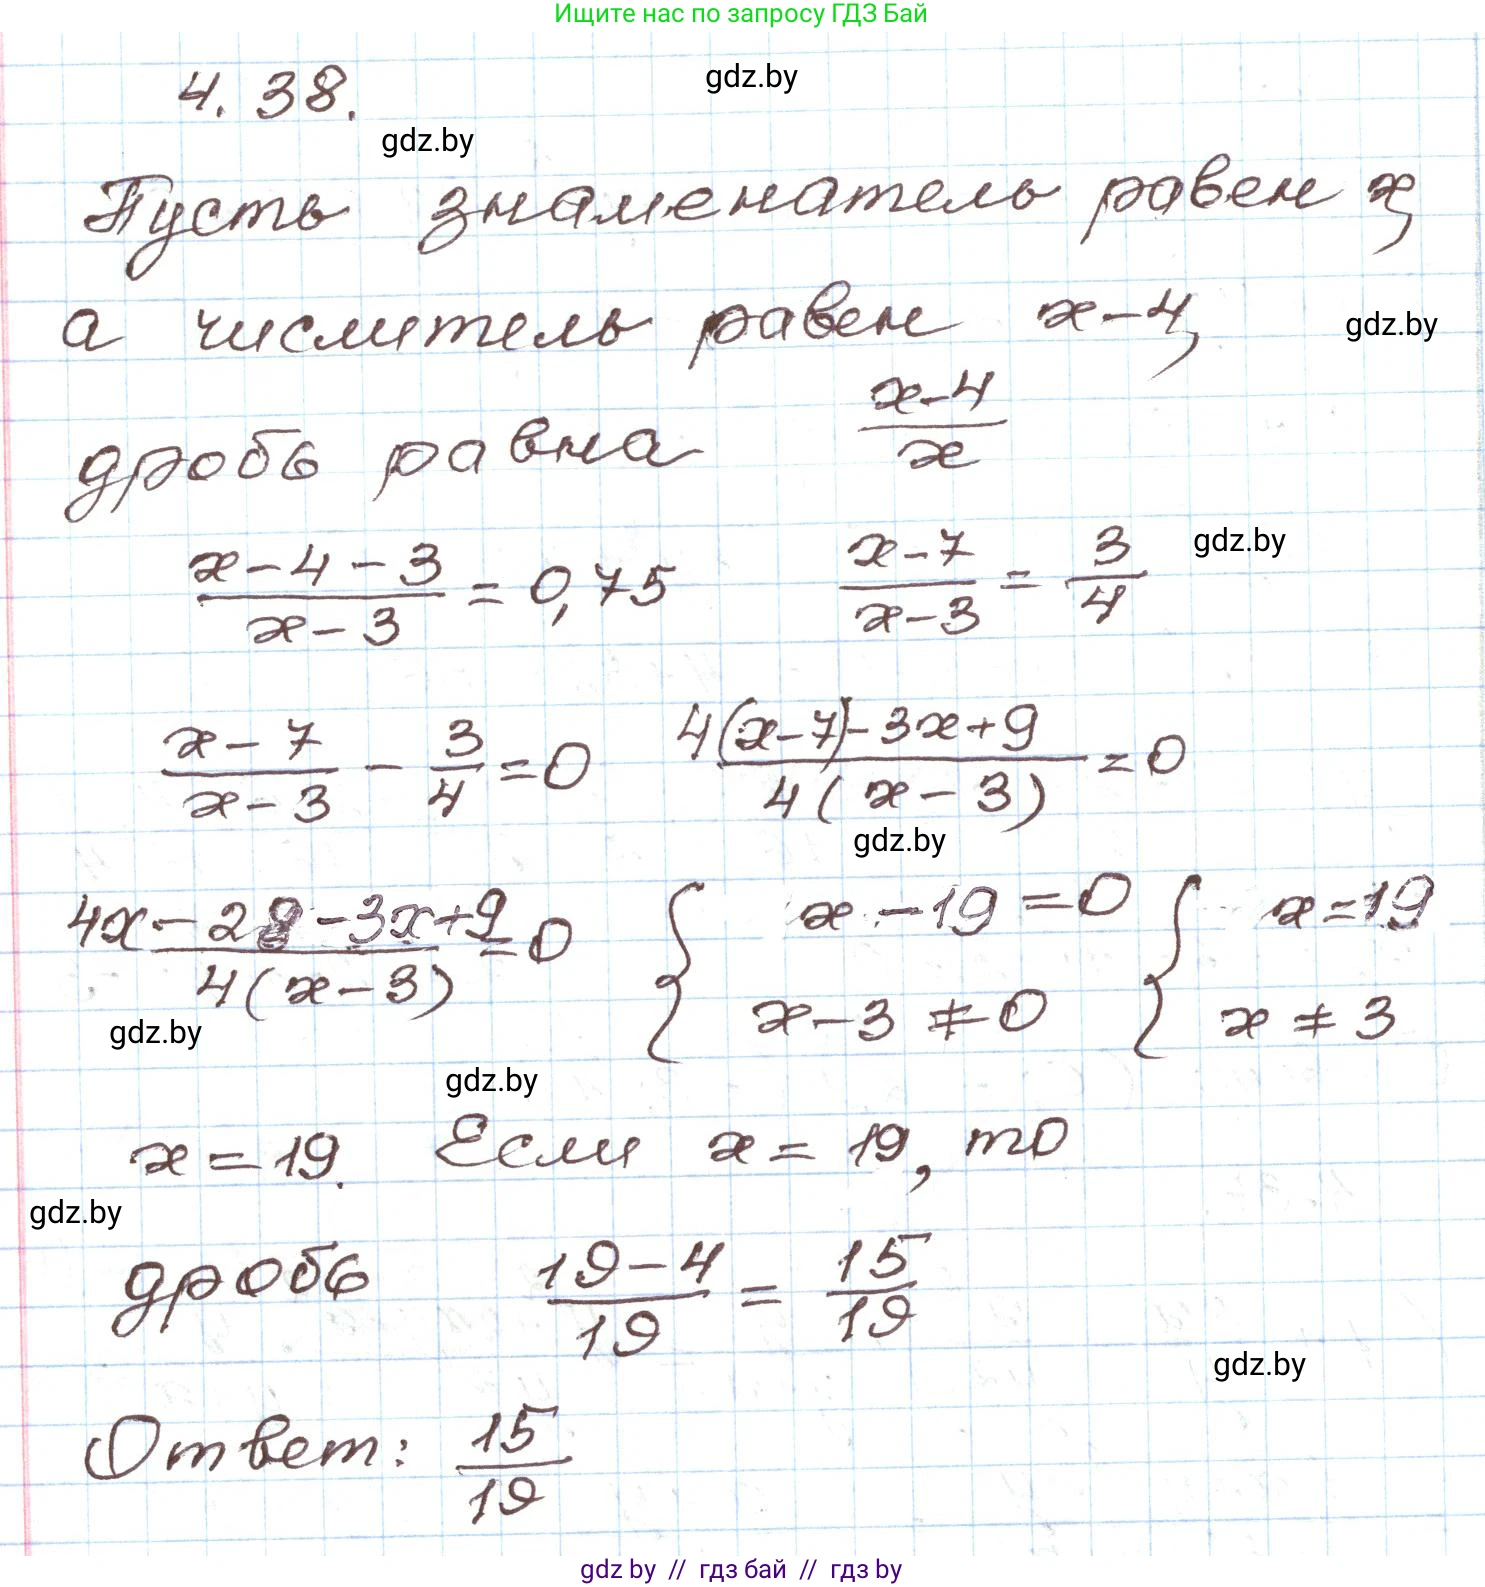 Ищите нас по запросу ГДЗ Бай
4.38.
gdz.by
gdz.by
Пусть знаменатель равен x,
а числитель равен x-4,
gdz.by
дробь равна (x-4)/x
(x-4-3)/(x-3) = 0,75 (x-7)/(x-3) = 3/4
gdz.by
(x-7)/(x-3) - 3/4 = 0 (4(x-7)-3x+9)/(4(x-3)) = 0
gdz.by
(4x-28-3x+9)/(4(x-3)) = 0 { x-19=0 { x=19
x-3≠0 x≠3
gdz.by
gdz.by
x=19. Если x=19, то
gdz.by
дробь (19-4)/19 = 15/19
gdz.by
Ответ: 15/19
gdz.by // гдз бай // гдз by